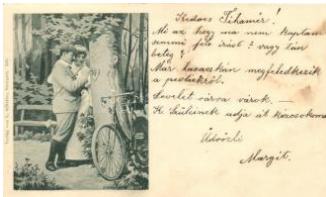 Kedves Tihamér!
Mi az hogy ma nem kaptam
semmi féle írást? vagy tán
beteg?
Már hacsakán megfeledkezik
a pestiekről.
Levelet várva várok. —
K. Szüleinek adja át kézcsókomat
Üdvözli
Margit.